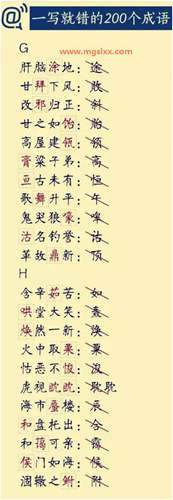 @ 一写就错的200个成语
G
www.mgslxx.com
肝脑涂地：途
甘拜下风：败
改邪归正：斜
甘之如饴：贻
高屋建瓴：领
膏粱子弟：高
亘古未有：恒
歌舞升平：午
鬼哭狼嚎：嗥
沽名钓誉：估
革故鼎新：顶
H
含辛茹苦：如
哄堂大笑：轰
焕然一新：换
火中取栗：粟
怙恶不悛：浚
虎视眈眈：耽耽
海市蜃楼：辰
和盘托出：合
和蔼可亲：霭
侯门如海：候
涸辙之鲋：附